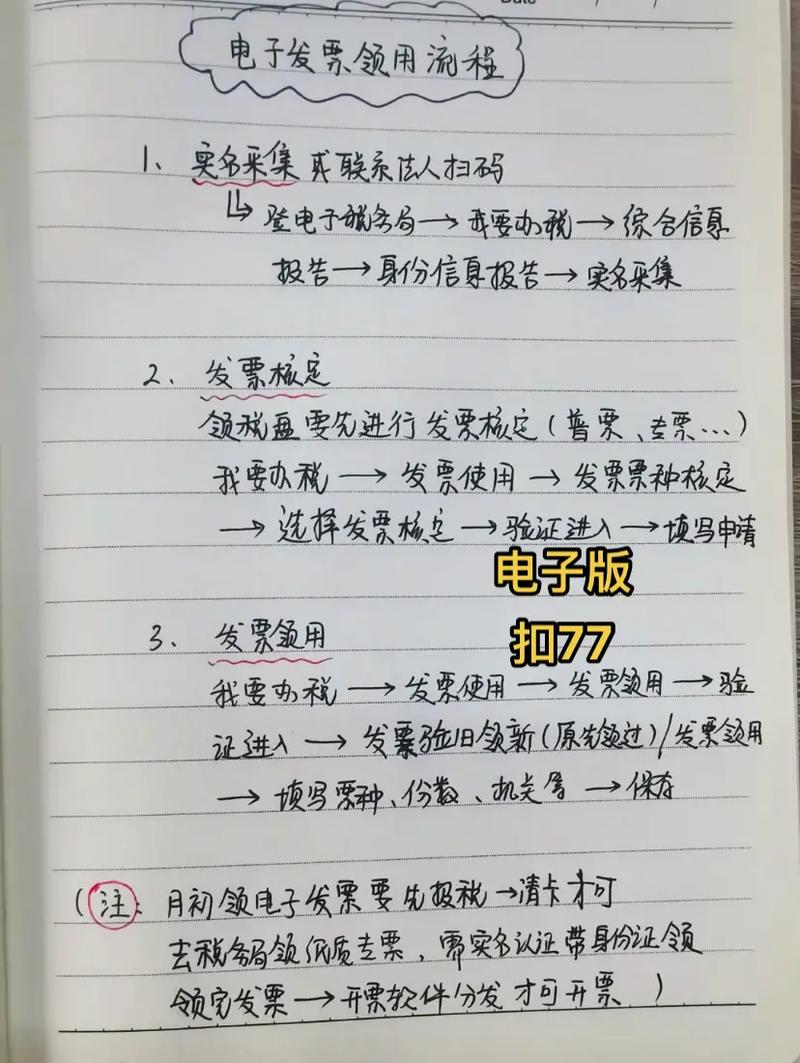 Date / /
电子发票领用流程
1、实名采集或联系法人扫码
登电子税务局→我要办税→综合信息
报告→身份信息报告→实名采集
2、发票核定
领税盘要先进行发票核定(普票、专票…)
我要办税→发票使用→发票票种核定
→选择发票核定→验证进入→填写申请
电子版
扣77
3、发票领用
我要办税→发票使用→发票领用→验
证进入→发票验旧领新(原先领过)/发票领用
→填写票种、份数、机关等→保存
(注:月初领电子发票要先报税→清卡才可
去税务局领纸质专票,需实名认证带身份证领
领完发票→开票软件分发才可开票)